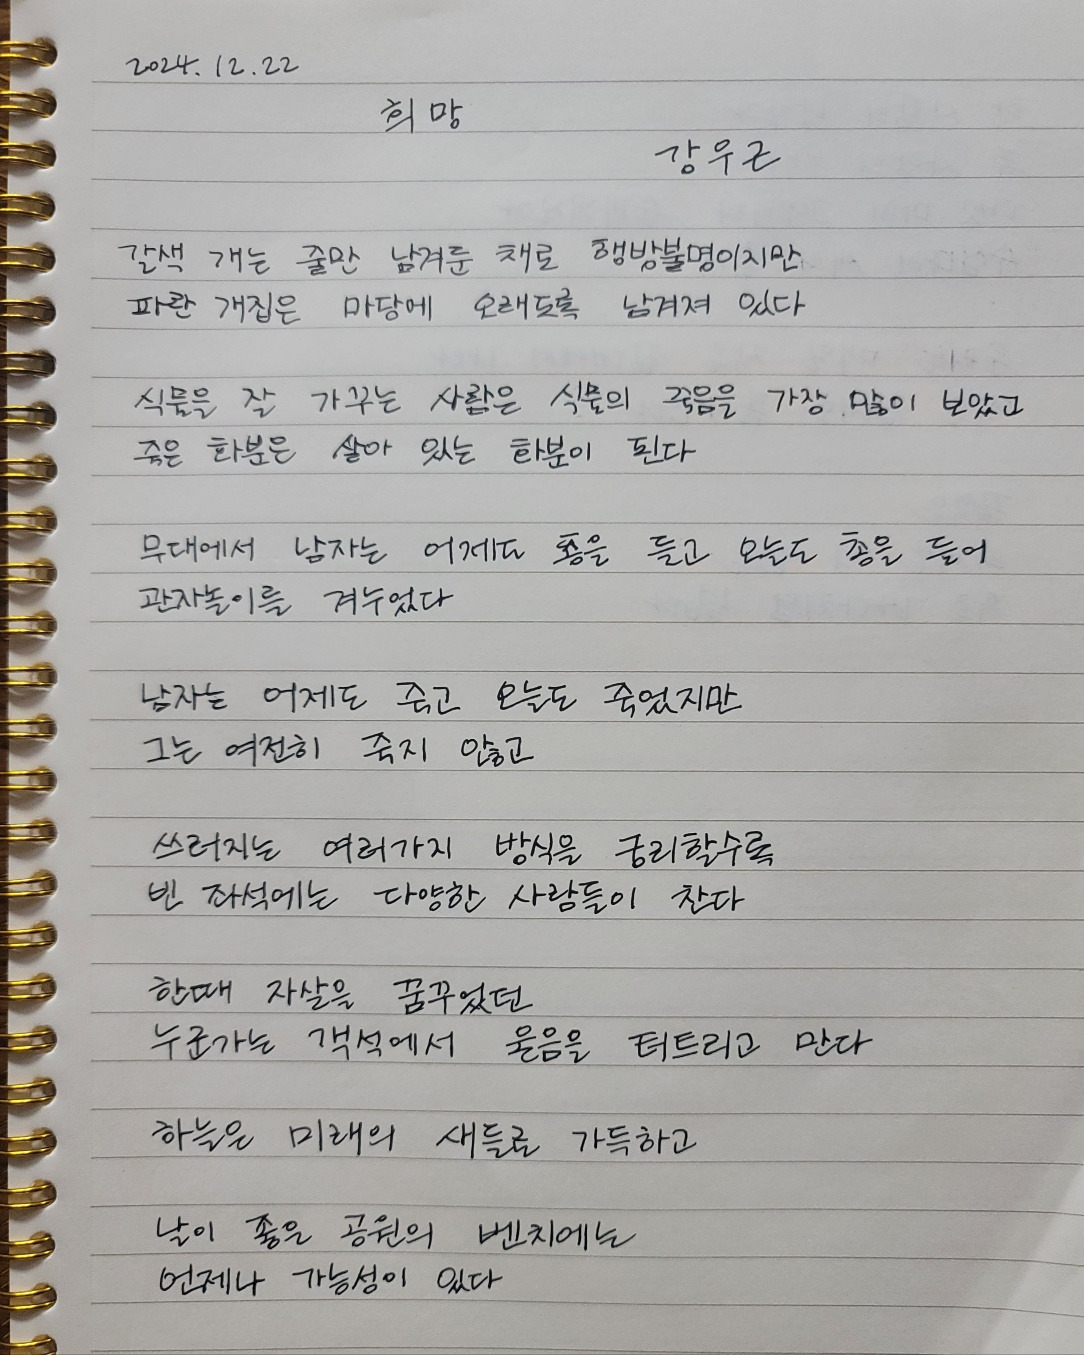 2024. 12. 22
희망
강우근
갈색 개는 줄만 남겨둔 채로 행방불명이지만
파란 개집은 마당에 오래도록 남겨져 있다
식물을 잘 가꾸는 사람은 식물의 죽음을 가장 많이 보았고
죽은 화분은 살아 있는 화분이 된다
무대에서 남자는 어제도 총을 들고 오늘도 총을 들어
관자놀이를 겨누었다
남자는 어제도 죽고 오늘도 죽었지만
그는 여전히 죽지 않고
쓰러지는 여러가지 방식을 궁리할수록
빈 좌석에는 다양한 사람들이 찬다
한때 자살을 꿈꾸었던
누군가는 객석에서 울음을 터트리고 만다
하늘은 미래의 새들로 가득하고
날이 좋은 공원의 벤치에는
언제나 가능성이 있다